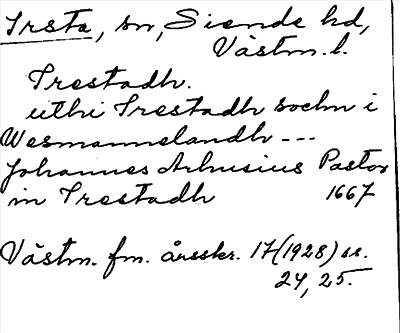 Irsta, sn, Siende hd,
Västm. l.
Irestadh.
uthi Irestadh sochn i
Wesmannelandh ---
Johannes Arhusius Pastor
in Irestadh 1667
Västm. fm. årsskr. 17 (1928) ss.
24, 25.